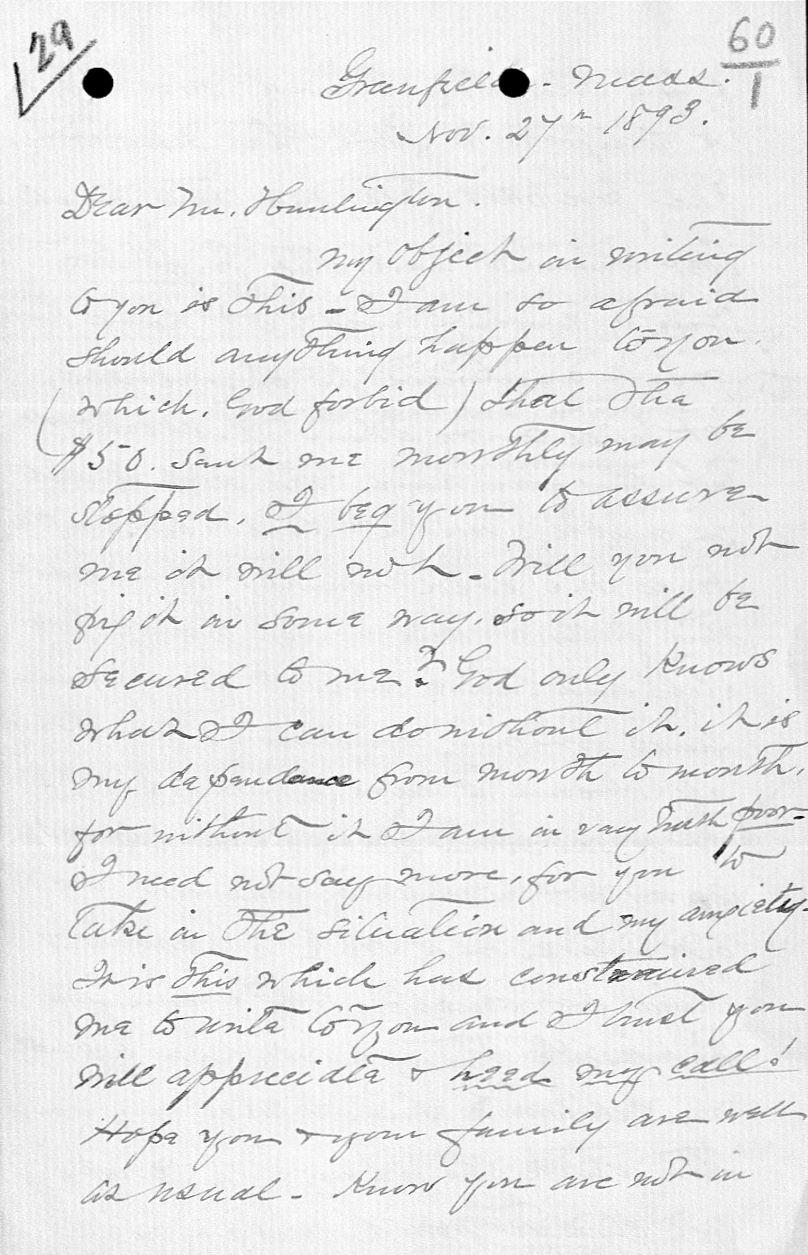 29
60
1
Granfield. Mass.
Nov. 27th 1893.
Dear Mr. Huntington.
My object in writing
to you is this - I am so afraid
should anything happen to you.
(which, God forbid) that the
$50. sent me monthly may be
stopped, I beg you to assure
me it will not. Will you not
fix it in some way, so it will be
secured to me? God only knows
what I can do without it. it is
my dependance from month to month,
for without it I am in very truth poor -
I need not say more, for you to
take in the situation and my anxiety.
It is this which has constrained
me to write to you and I trust you
will appreciate & heed my call!
Hope you & your family are well
as usual - Know you are not in